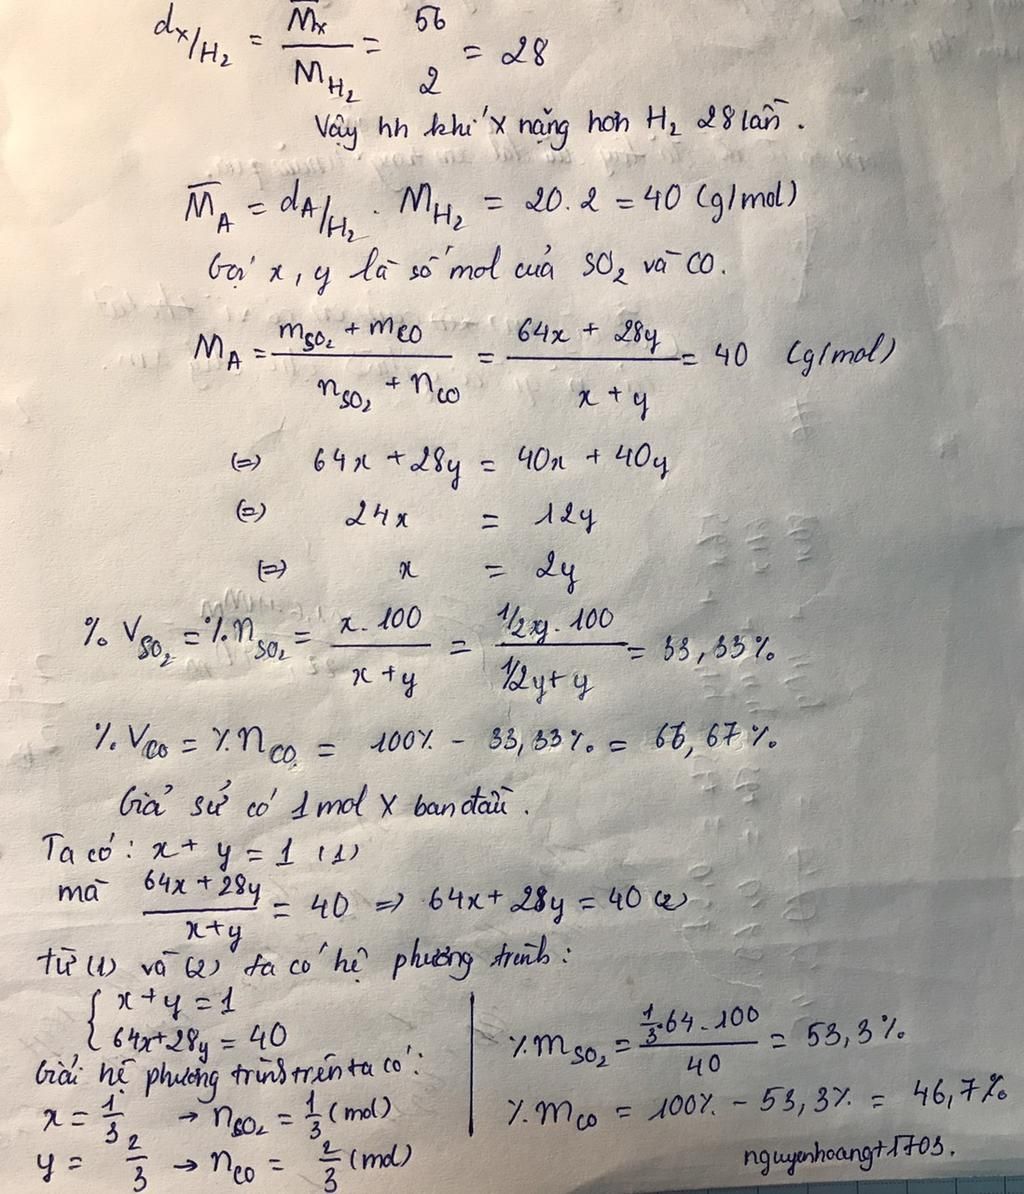 d_X/H₂ = M̅x / M_H₂ = 56 / 2 = 28
Vậy hh khí X nặng hơn H₂ 28 lần.
M̅_A = d_A/H₂ . M_H₂ = 20.2 = 40 (g/mol)
Gọi x, y là số mol của SO₂ và CO.
M_A = (m_SO₂ + m_CO) / (n_SO₂ + n_CO) = (64x + 28y) / (x + y) = 40 (g/mol)
(=) 64x + 28y = 40x + 40y
(=) 24x = 12y
(=) x = 2y
% V_SO₂ = % n_SO₂ = (x . 100) / (x + y) = (1/2 y . 100) / (1/2 y + y) = 33,33%
% V_CO = % n_CO = 100% - 33,33% = 66,67%
Giả sử có 1 mol X ban đầu.
Ta có: x + y = 1 (1)
mà (64x + 28y) / (x+y) = 40 => 64x + 28y = 40 (2)
từ (1) và (2) ta có hệ phương trình:
{ x + y = 1
64x + 28y = 40
Giải hệ phương trình trên ta có:
x = 1/3 → n_SO₂ = 1/3 (mol)
y = 2/3 → n_CO = 2/3 (mol)
% m_SO₂ = (1/3 . 64 . 100) / 40 = 53,3%
% m_CO = 100% - 53,3% = 46,7%
nguyenhoangt1703.